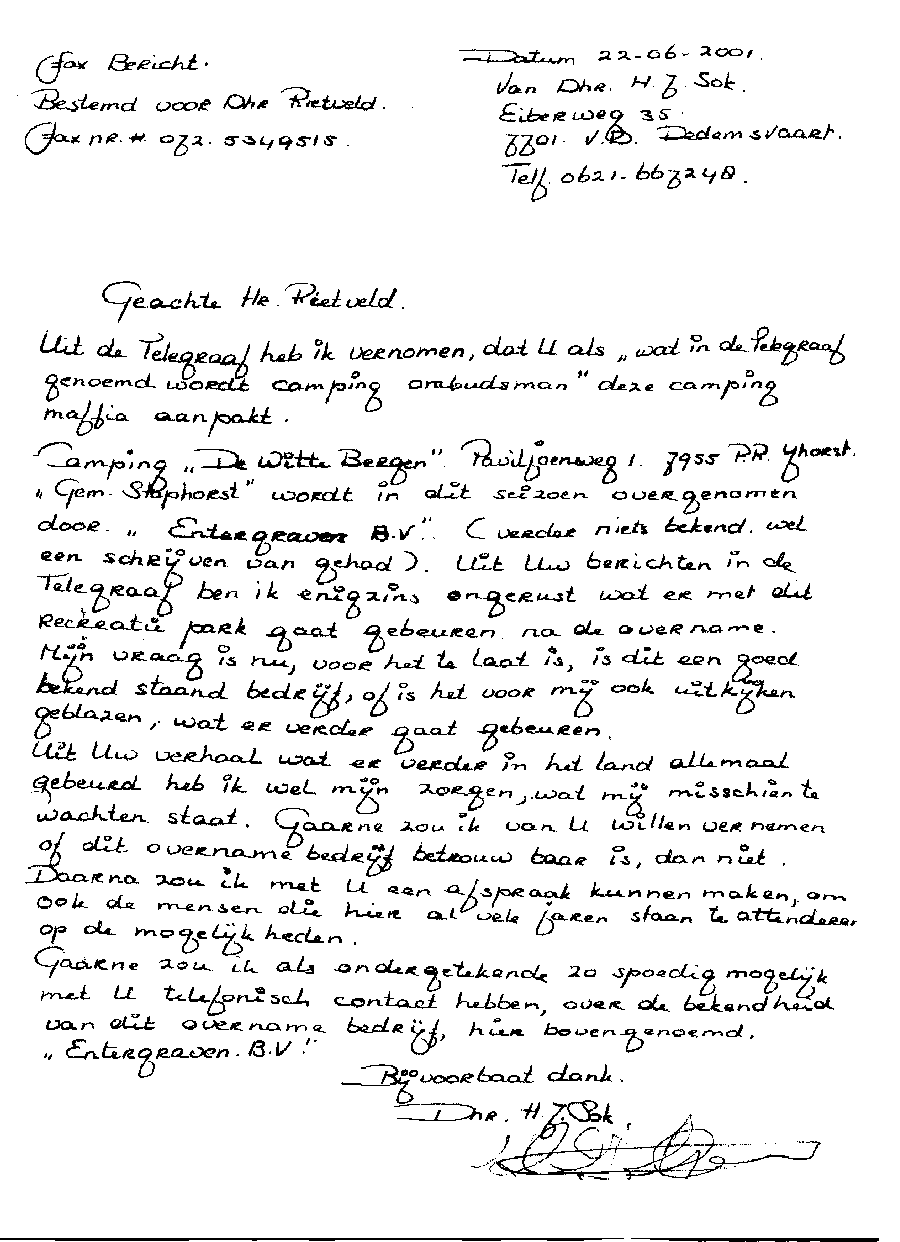 Fax Bericht.
Bestemd voor Dhr Rietveld.
Fax nr. # 072. 5349515.
Datum 22-06-2001.
Van Dhr. H J Sok.
Eiberweg 35.
7701. V.B. Dedemsvaart.
Telf. 0621-667248.
Geachte He. Rietveld.
Uit de Telegraaf heb ik vernomen, dat U als „wat in de Telegraaf
genoemd wordt camping ombudsman" deze camping
maffia aanpakt.
Camping „De Witte Bergen". Paviljoenweg 1. 7955 P.R. Yhorst.
„Gem. Staphorst" wordt in dit seizoen overgenomen
door. „Entergraven B.V". (verder niets bekend. wel
een schrijven van gehad). Uit Uw berichten in de
Telegraaf ben ik enigzins ongerust wat er met dit
Recreatie park gaat gebeuren na de overname.
Mijn vraag is nu, voor het te laat is, is dit een goed
bekend staand bedrijf, of is het voor mij ook uitkijken
geblazen, wat er verder gaat gebeuren.
Uit Uw verhaal wat er verder in het land allemaal
gebeurd heb ik wel mijn zorgen, wat mij misschien te
wachten staat. Gaarne zou ik van U willen vernemen
of dit overname bedrijf betrouw baar is, dan niet.
Daarna zou ik met U een afspraak kunnen maken, om
ook de mensen die hier al vele jaren staan te attenderen
op de mogelijk heden.
Gaarne zou ik als ondergetekende zo spoedig mogelijk
met U telefonisch contact hebben, over de bekendheid
van dit overname bedrijf, hier bovengenoemd.
„Entergraven. B.V."
Bij voorbaat dank.
Dhr. H. J. Sok.